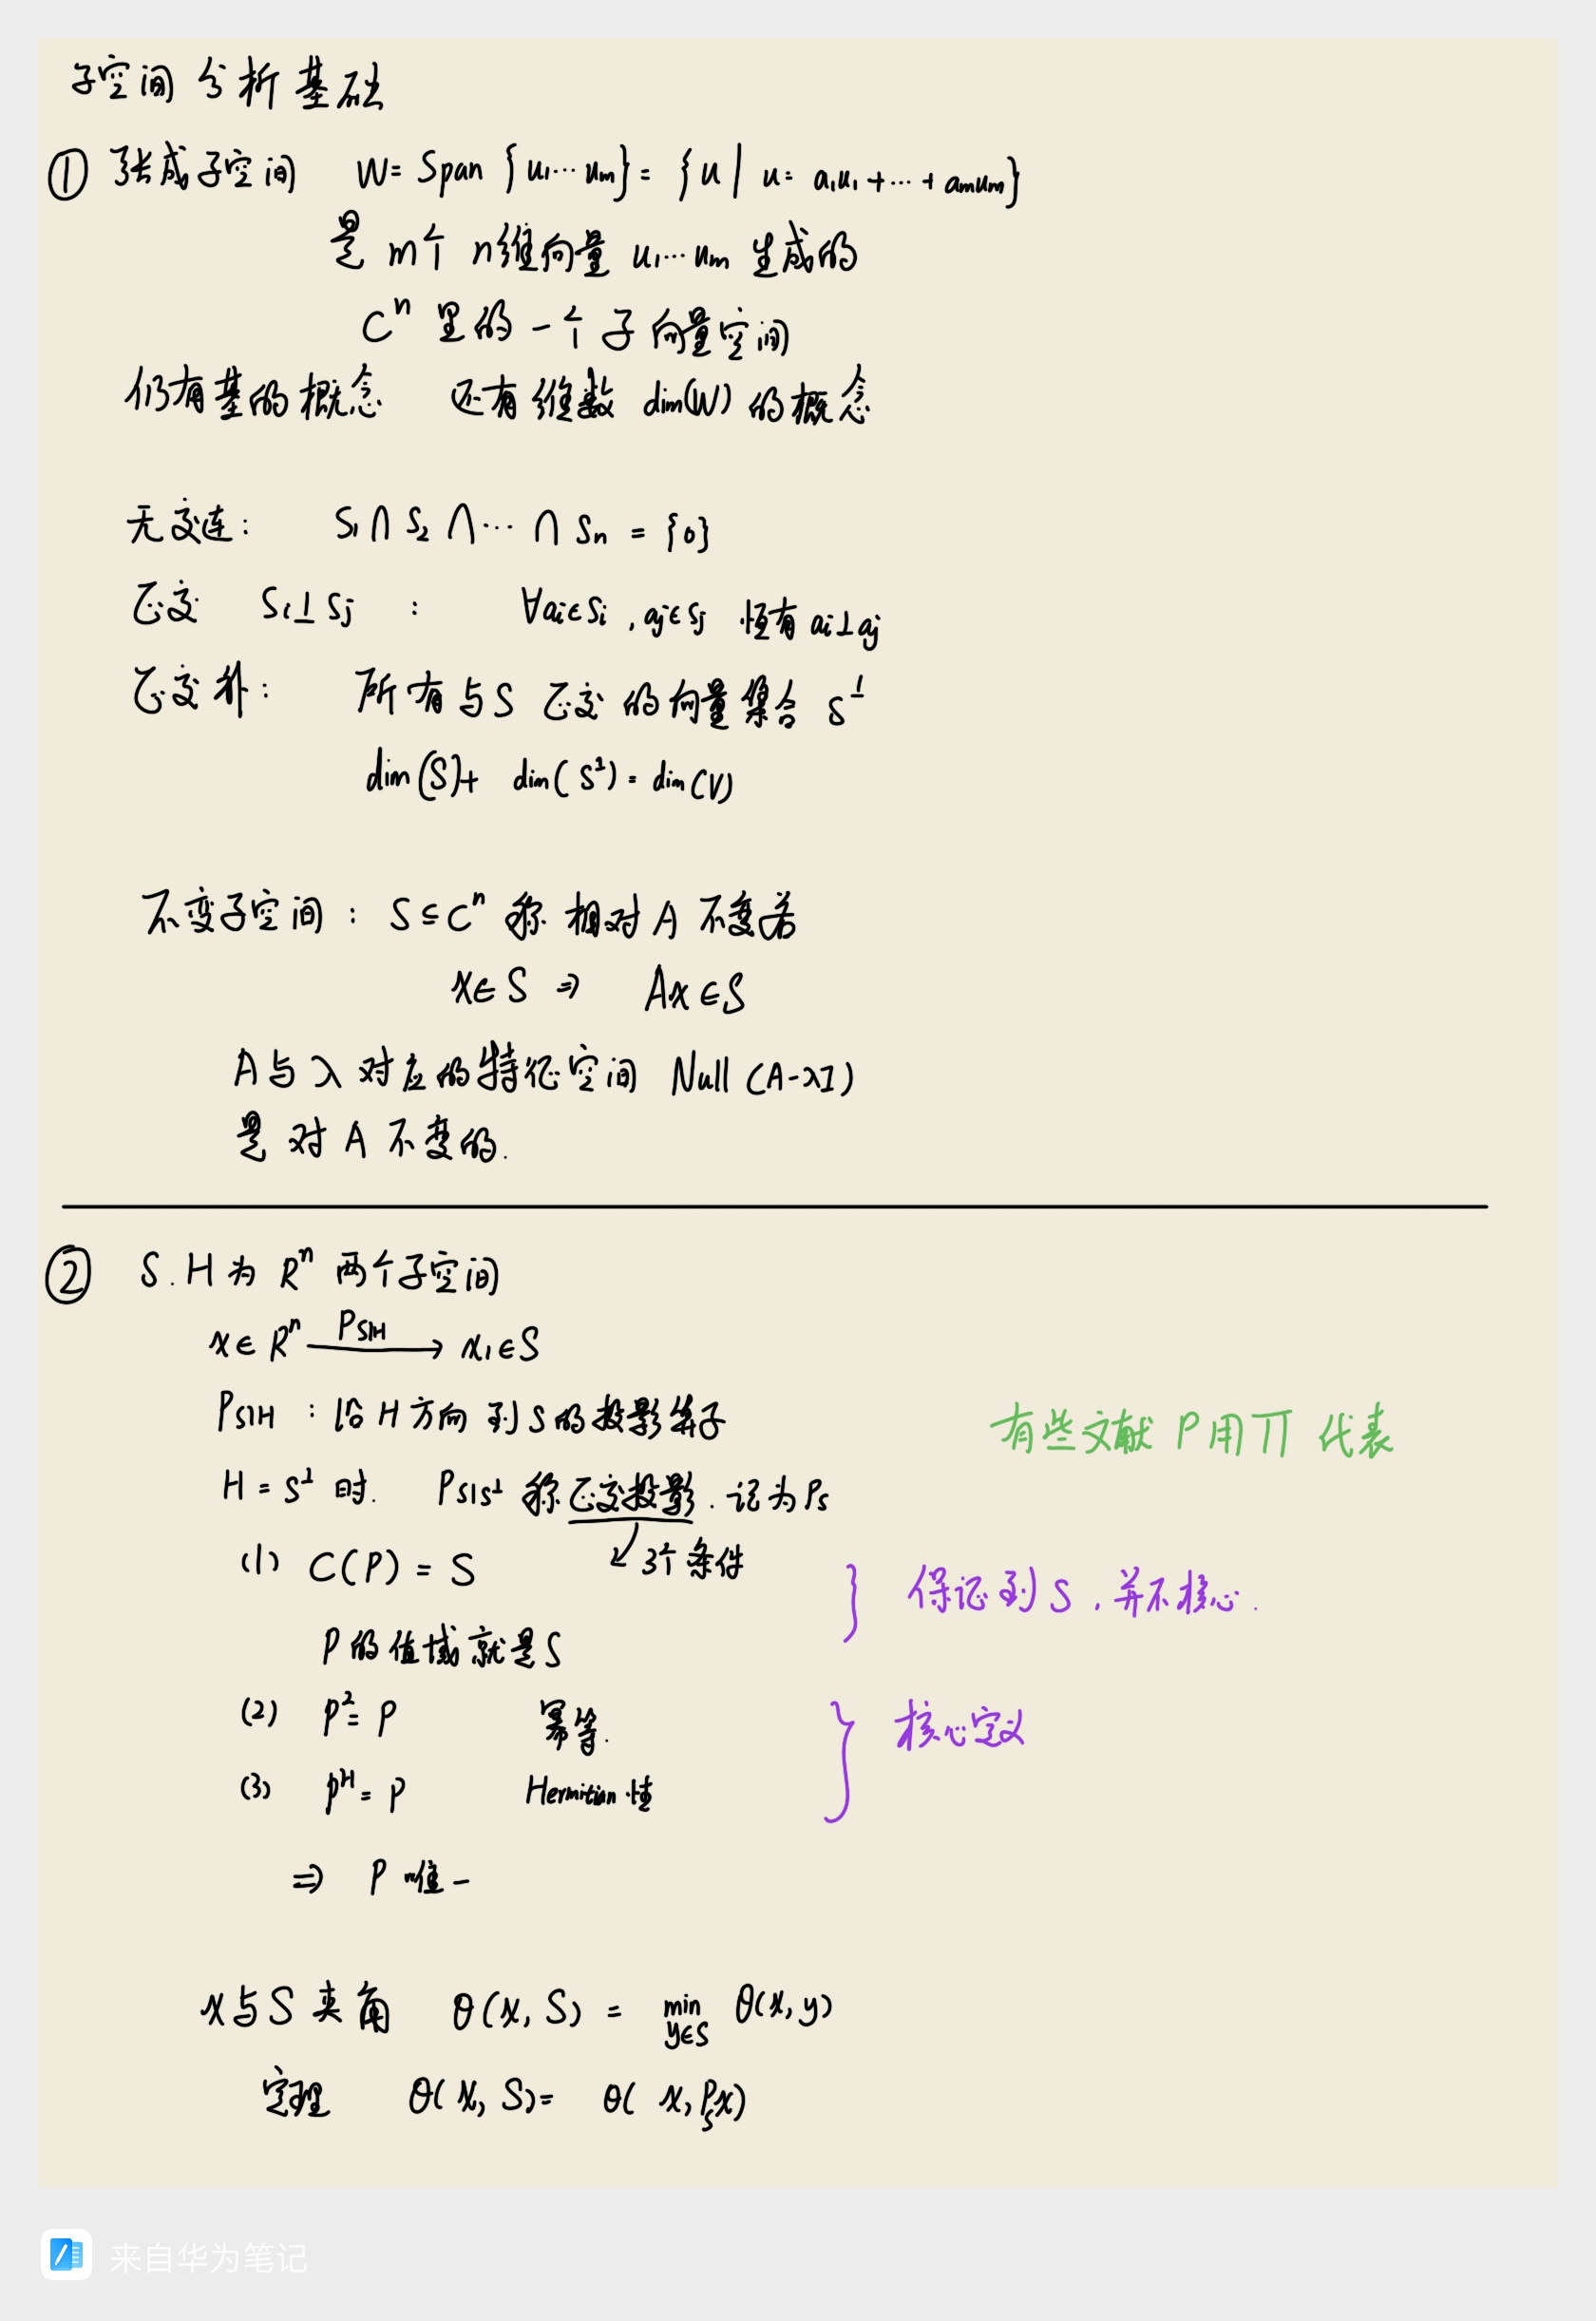 子空间分析基础
① 张成子空间 W = Span {u₁…uₘ} = {u | u = a₁u₁+…+aₘuₘ}
是 m个 n维向量 u₁…uₘ 生成的
Cⁿ 里的一个子向量空间
仍有基的概念 还有维数 dim(W) 的概念
无交连: S₁∩S₂∩…∩Sₙ = {0}
正交 Sᵢ⊥Sⱼ : ∀aᵢ∈Sᵢ, aⱼ∈Sⱼ 恒有 aᵢ⊥aⱼ
正交补: 所有与S 正交的向量集合 S^⊥
dim(S)+ dim(S^⊥) = dim(V)
不变子空间: S⊆Cⁿ 称相对A不变若
x∈S ⇒ Ax∈S
A与λ对应的特征空间 Null(A-λI)
是对A不变的.
② S.H为 Rⁿ 两个子空间
P_{S|H}
x∈Rⁿ ⟶ x₁∈S
P_{S|H} : 沿H方向到S的投影算子
有些文献 P用Π代表
H = S^⊥ 时. P_{S|S^⊥} 称正交投影. 记为 P_S
3个条件
(1) C(P) = S
保证到S, 并不核心.
P的值域就是S
(2) P² = P 幂等.
核心定义
(3) P^H = P Hermitian性
⇒ P唯一
x与S夹角 θ(x, S) = min θ(x, y)
y∈S
定理 θ(x, S) = θ(x, P_S x)
来自华为笔记